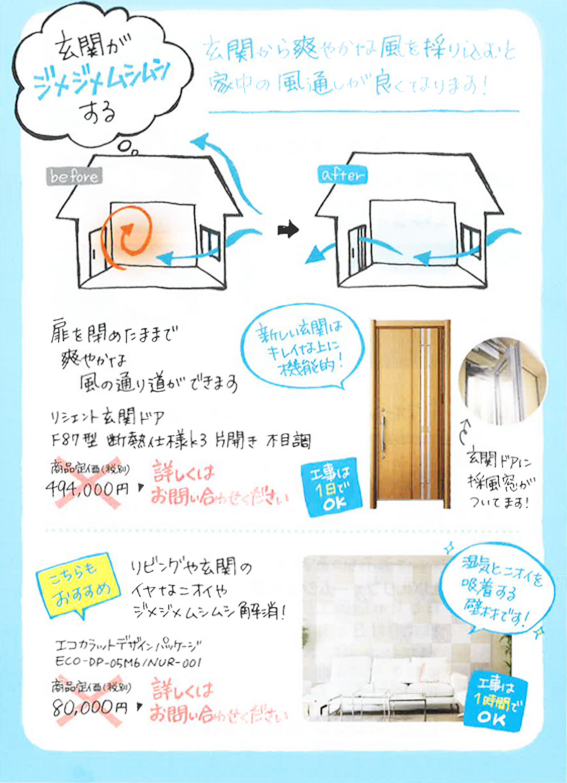 玄関が
ジメジメムシムシ
する
玄関から爽やかな風を採り込むと
家中の風通しが良くなります！
before
after
扉を閉めたままで
爽やかな
風の通り道ができます
新しい玄関は
キレイな上に
機能的！
リシェント玄関ドア
F87型 断熱仕様k3 片開き 木目調
商品定価(税別)
494,000円
詳しくは
お問い合わせください
工事は
1日で
OK
玄関ドアに
採風窓が
ついてます！
こちらも
おすすめ
リビングや玄関の
イヤなニオイや
ジメジメムシムシ解消！
湿気とニオイを
吸着する
壁材です！
エコカラットデザインパッケージ
ECO-DP-05M6/NUR-001
商品定価(税別)
80,000円
詳しくは
お問い合わせください
工事は
1時間で
OK